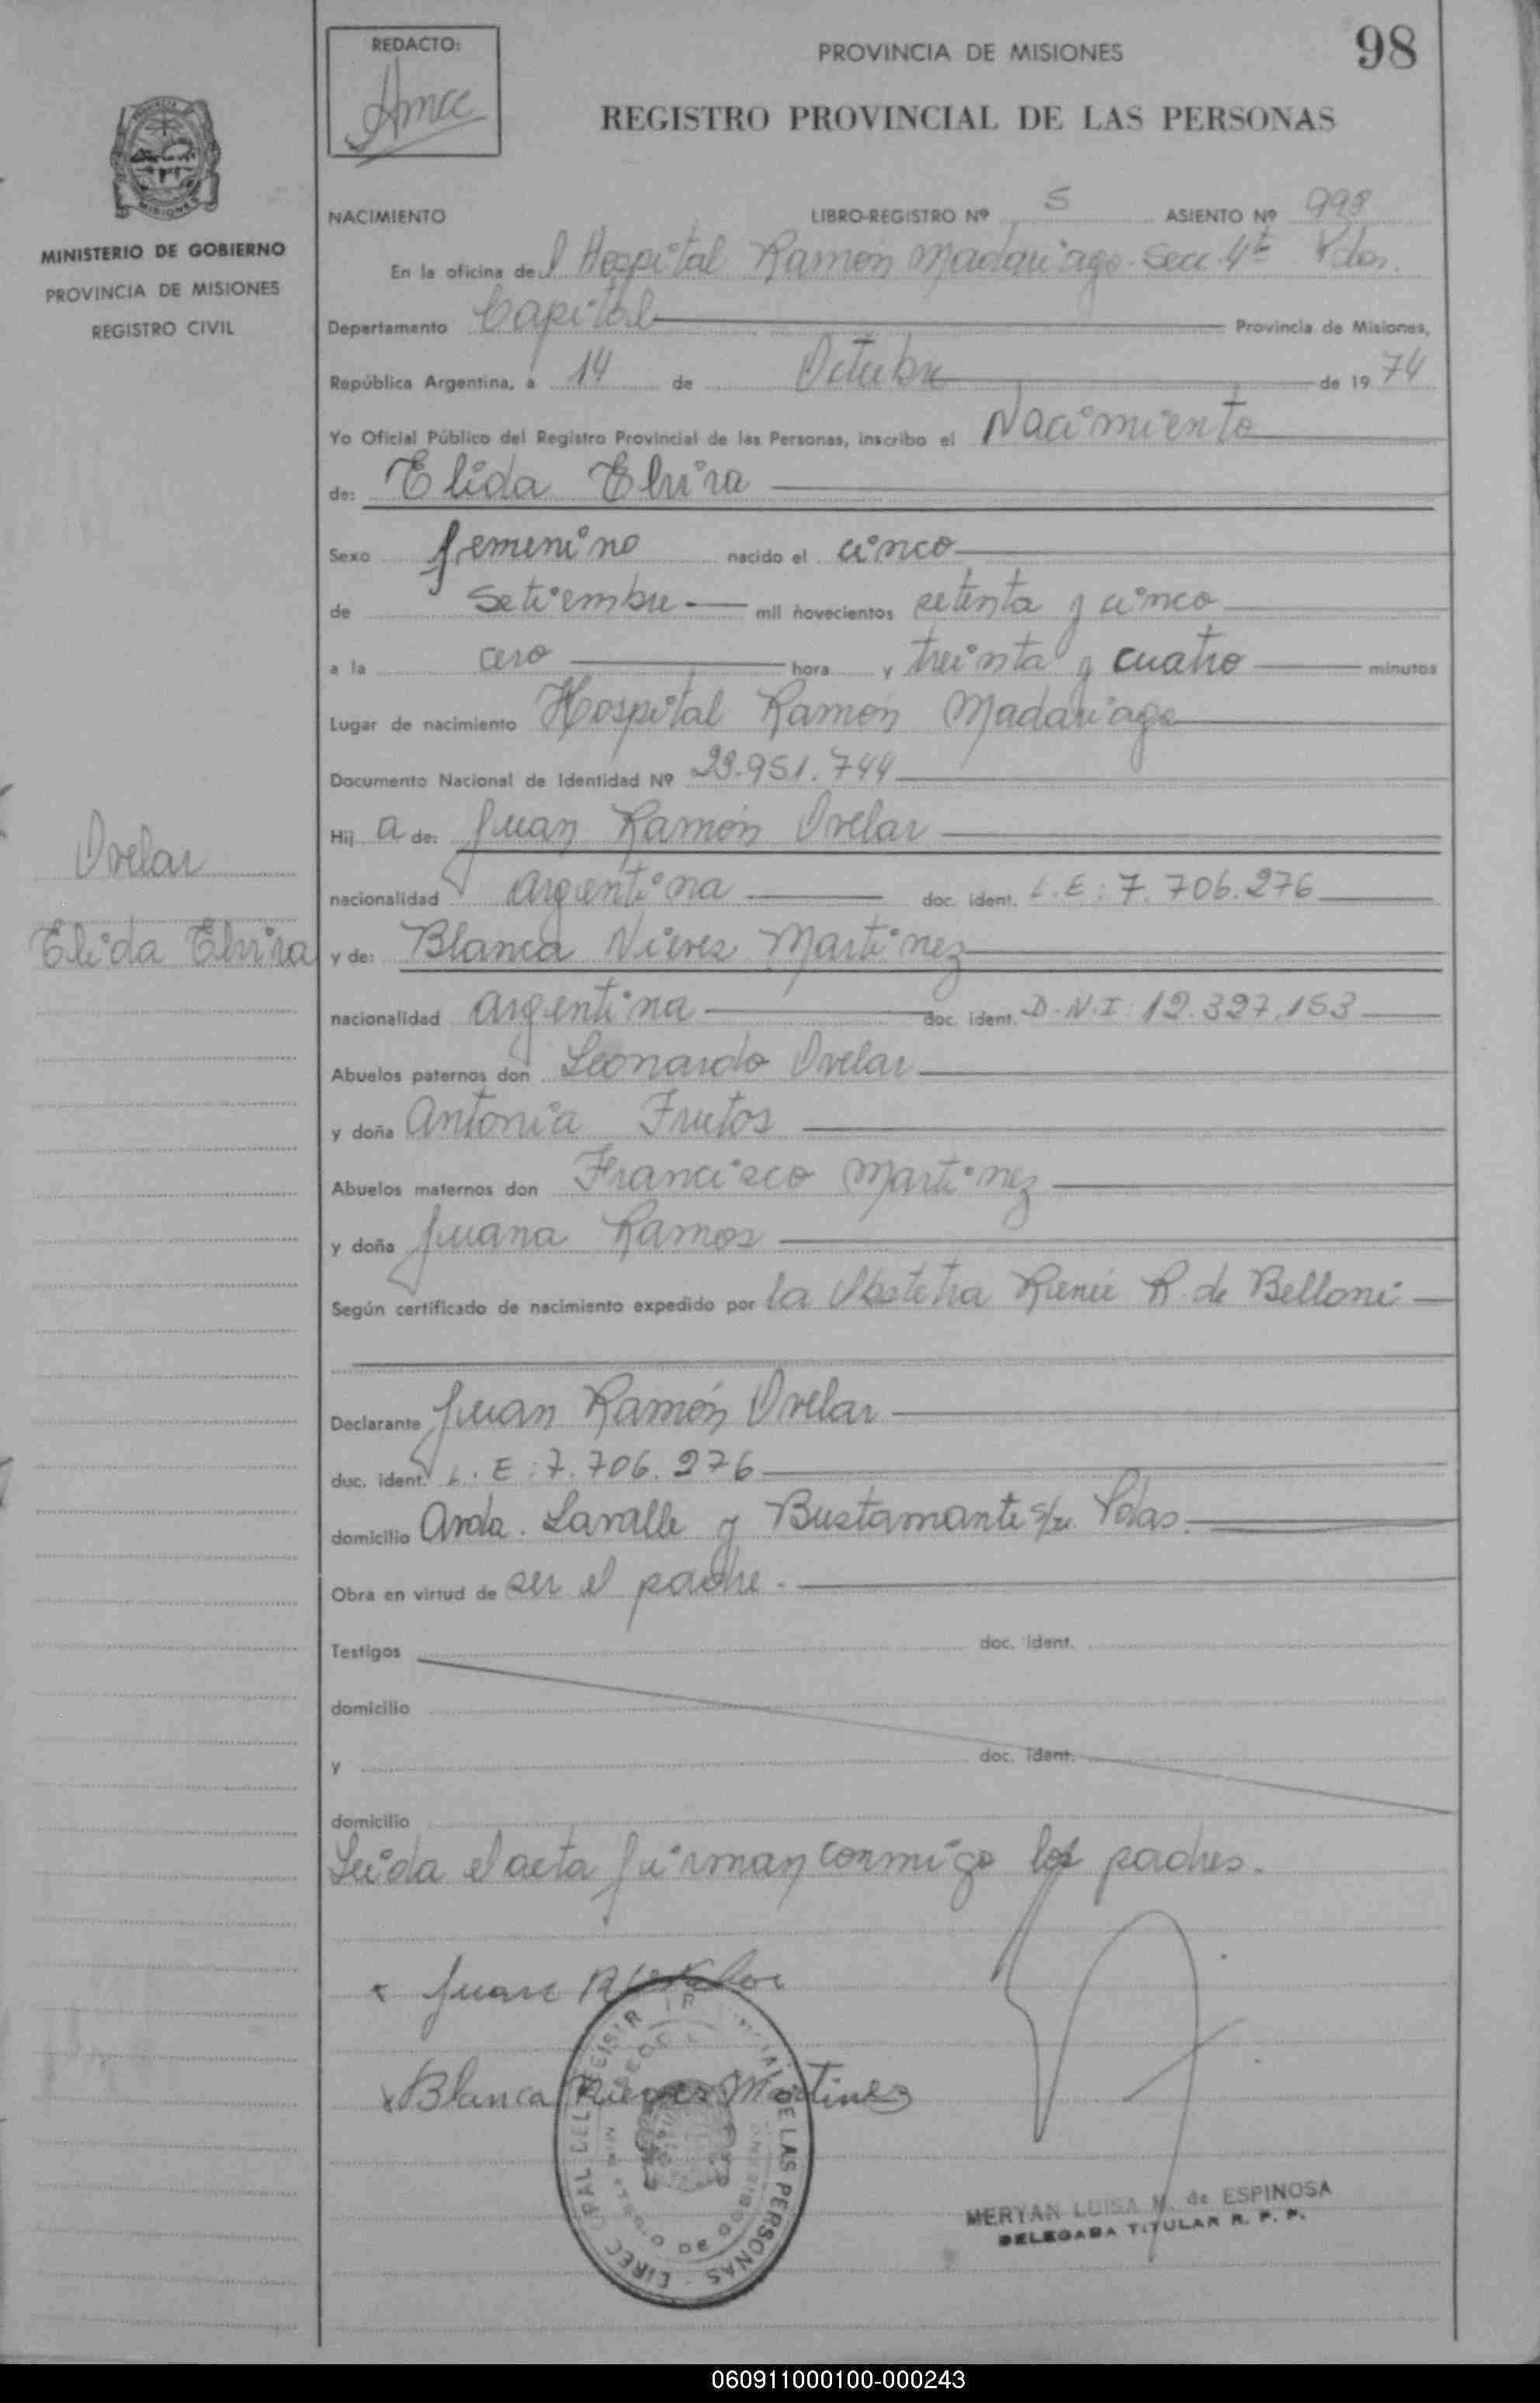 REDACTO:
PROVINCIA DE MISIONES
98
REGISTRO PROVINCIAL DE LAS PERSONAS
MISIONES
MINISTERIO DE GOBIERNO
PROVINCIA DE MISIONES
REGISTRO CIVIL
NACIMIENTO LIBRO-REGISTRO Nº 5 ASIENTO Nº 998
En la oficina del Hospital Ramón Madariaga Secc 4ta Pdas.
Departamento Capital Provincia de Misiones,
República Argentina, a 14 de Octubre de 1974
Yo Oficial Público del Registro Provincial de las Personas, inscribo el Nacimiento
de: Elida Elvira
Sexo femenino nacido el cinco
de Setiembre mil novecientos setenta y cinco
a la cero hora y treinta y cuatro minutos
Lugar de nacimiento Hospital Ramón Madariaga
Documento Nacional de Identidad Nº 23.951.744
Hij a de: Juan Ramón Ovelar
nacionalidad argentina doc. ident. L.E: 7.706.276
y de: Blanca Nieves Martinez
nacionalidad argentina doc. ident. D.N.I: 12.327.153
Abuelos paternos don Leonardo Ovelar
y doña Antonia Frutos
Abuelos maternos don Francisco Martinez
y doña Juana Ramos
Según certificado de nacimiento expedido por la Obstetra Renée R. de Belloni
Declarante Juan Ramón Ovelar
duc. ident. L.E: 7.706.276
domicilio Avda. Lavalle y Bustamante s/n Pdas.
Obra en virtud de ser el padre.
Testigos doc. ident.
domicilio
y doc. ident.
domicilio
Leida el acta firman conmigo los padres.
Ovelar
Elida Elvira
x Juan R Ovelar
x Blanca Nieves Martinez
MERYAN LUISA M. de ESPINOSA
DELEGADA TITULAR R. P. P.
060911000100-000243